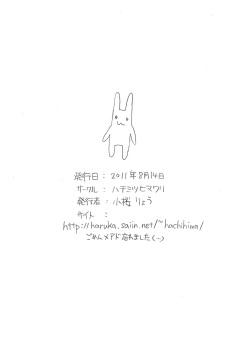 発行日 : 2011年8月14日
サークル : ハチミツヒマワリ
発行者 : 小桜りょう
サイト :
http://haruka.saiin.net/~hachihima/
ごめんメアド忘れました(-)